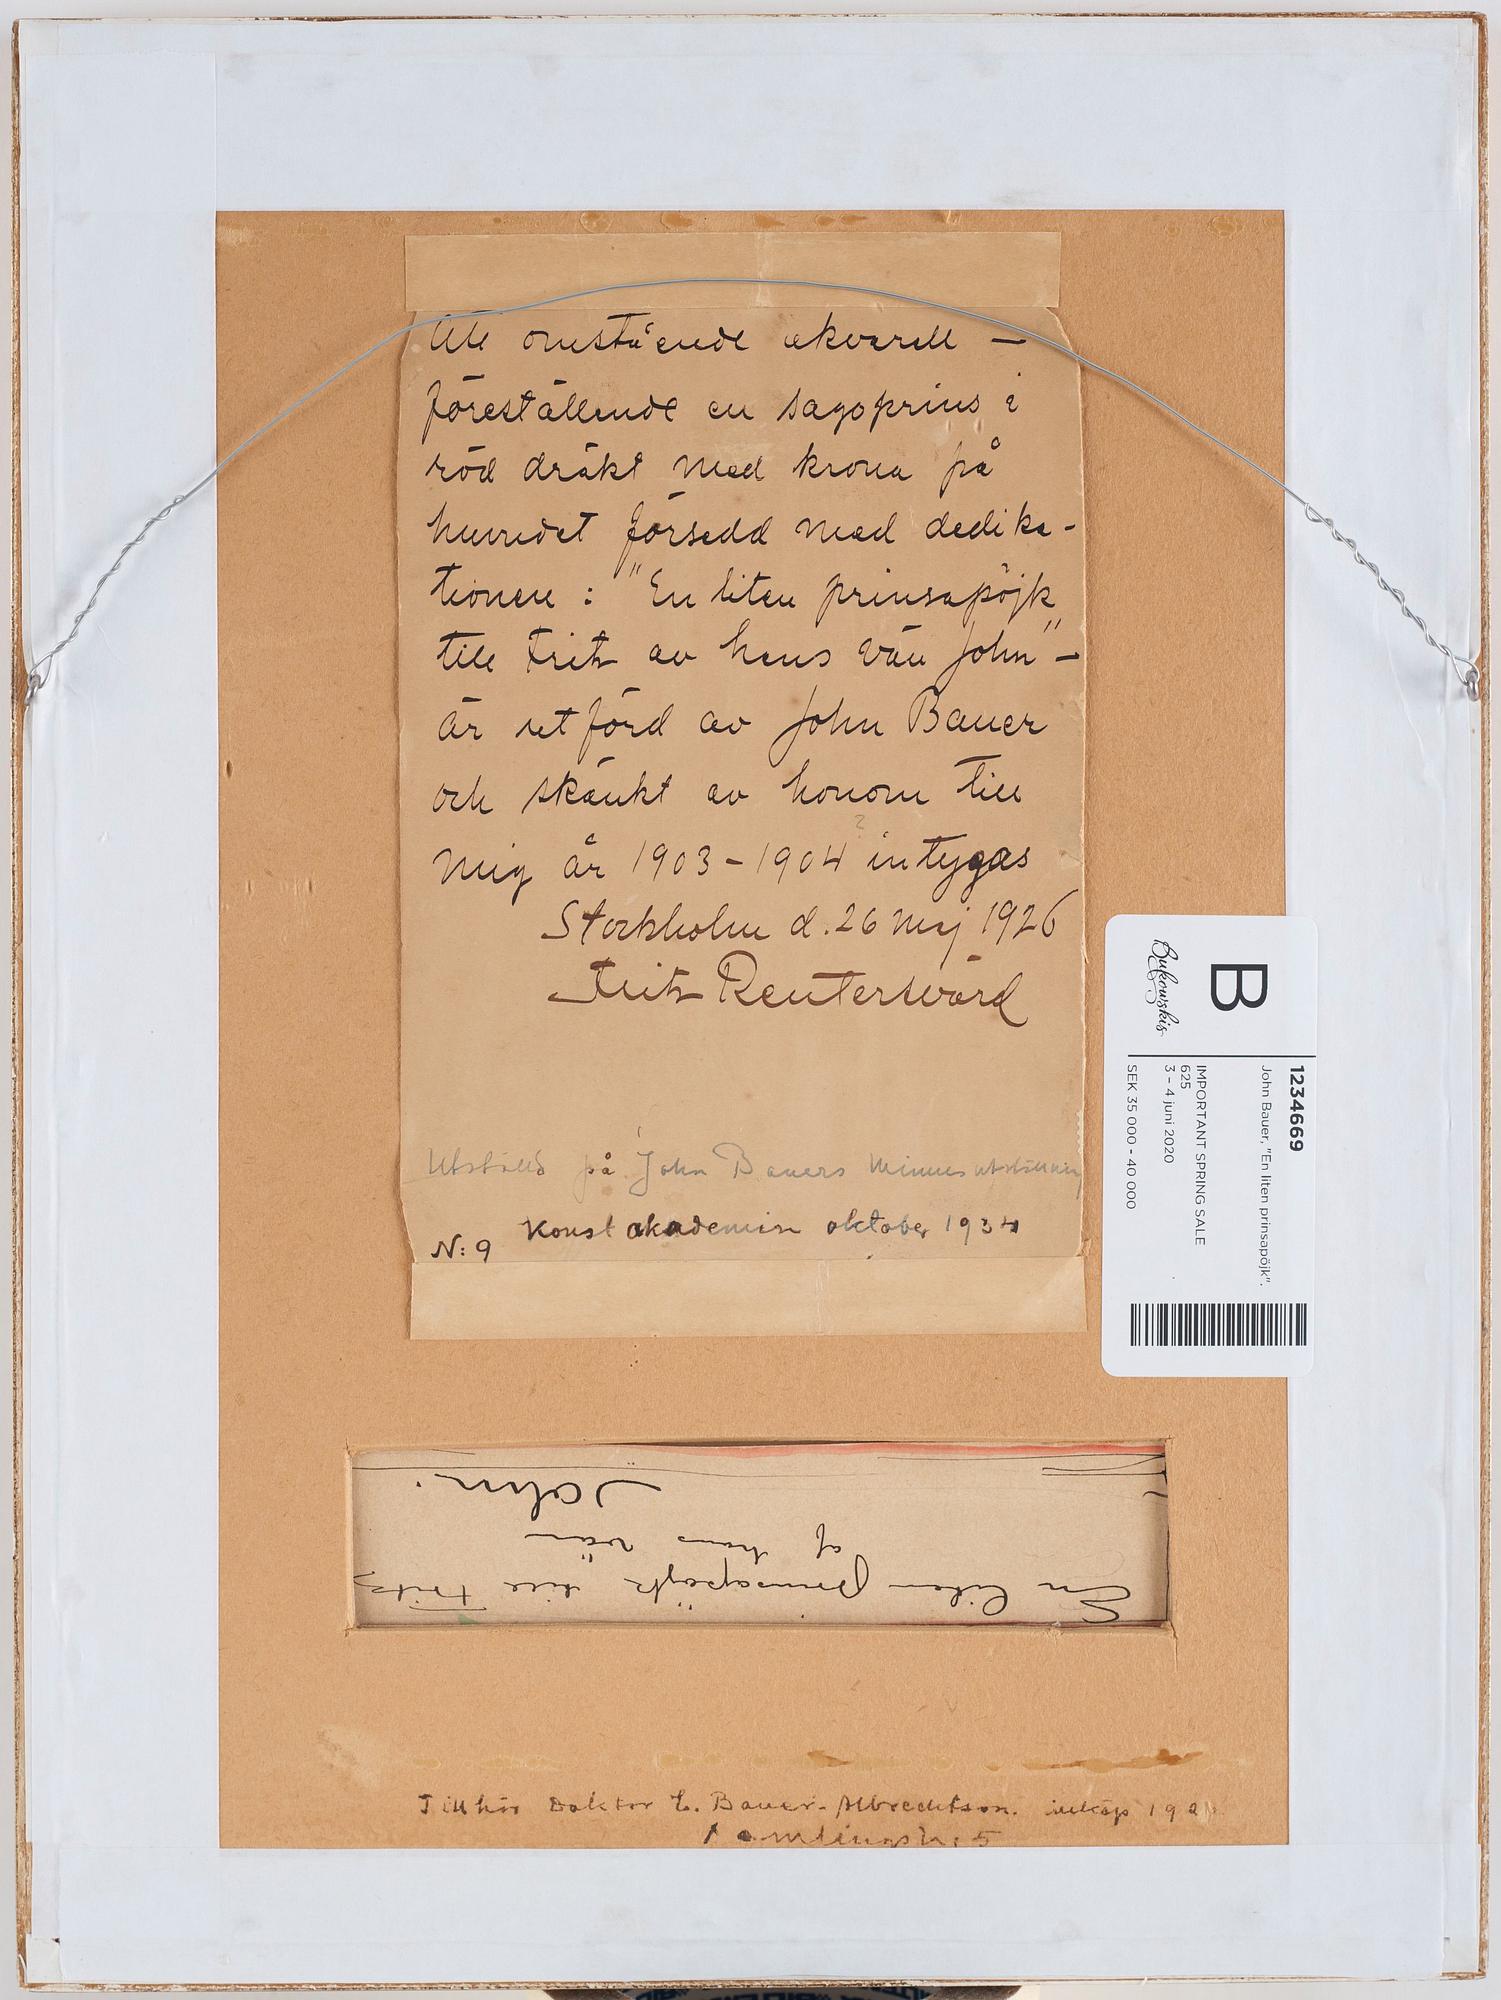 Att omstående akvarell –
föreställande en sagoprins i
röd dräkt med krona på
huvudet försedd med dedika-
tionen : "En liten prinsapöjk
till Fritz av hans vän John" –
är utförd av John Bauer
och skänkt av honom till
?
mig år 1903 – 1904 intygas
Stockholm d. 26 Maj 1926
Fritz Reuterswärd
Utställd på John Bauers Minnesutställning
Konstakademin oktober 1934
N: 9
B
Bukowskis
1234669
John Bauer, "En liten prinsapöjk".
IMPORTANT SPRING SALE
625
3 – 4 juni 2020
SEK 35 000 - 40 000
En liten prinsapöjk till Fritz
af hans vän
John.
Tillhör Doktor E. Bauer-Albrechtson. inköp
5